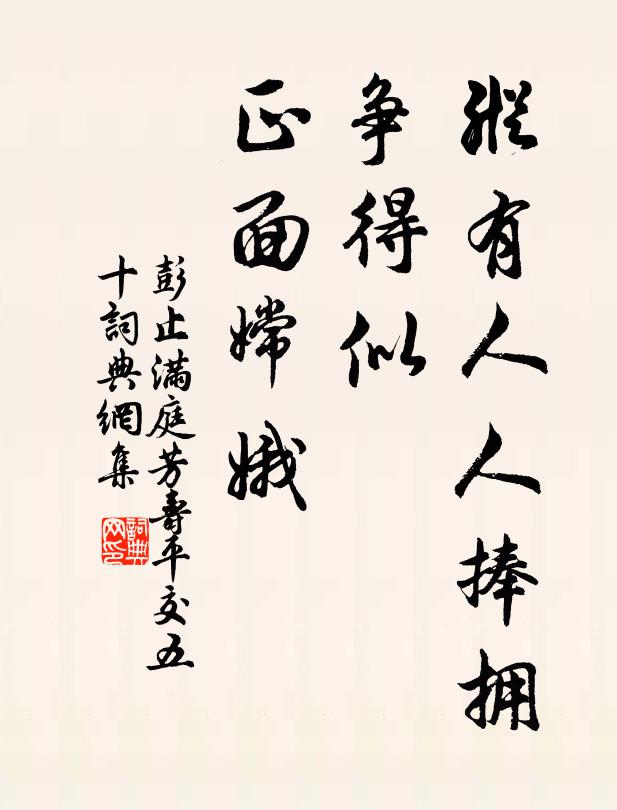 縱有人人捧拥
爭得似
正面嫦娥
彭止满庭芳壽平交五
十詞典網集
詞典
网印